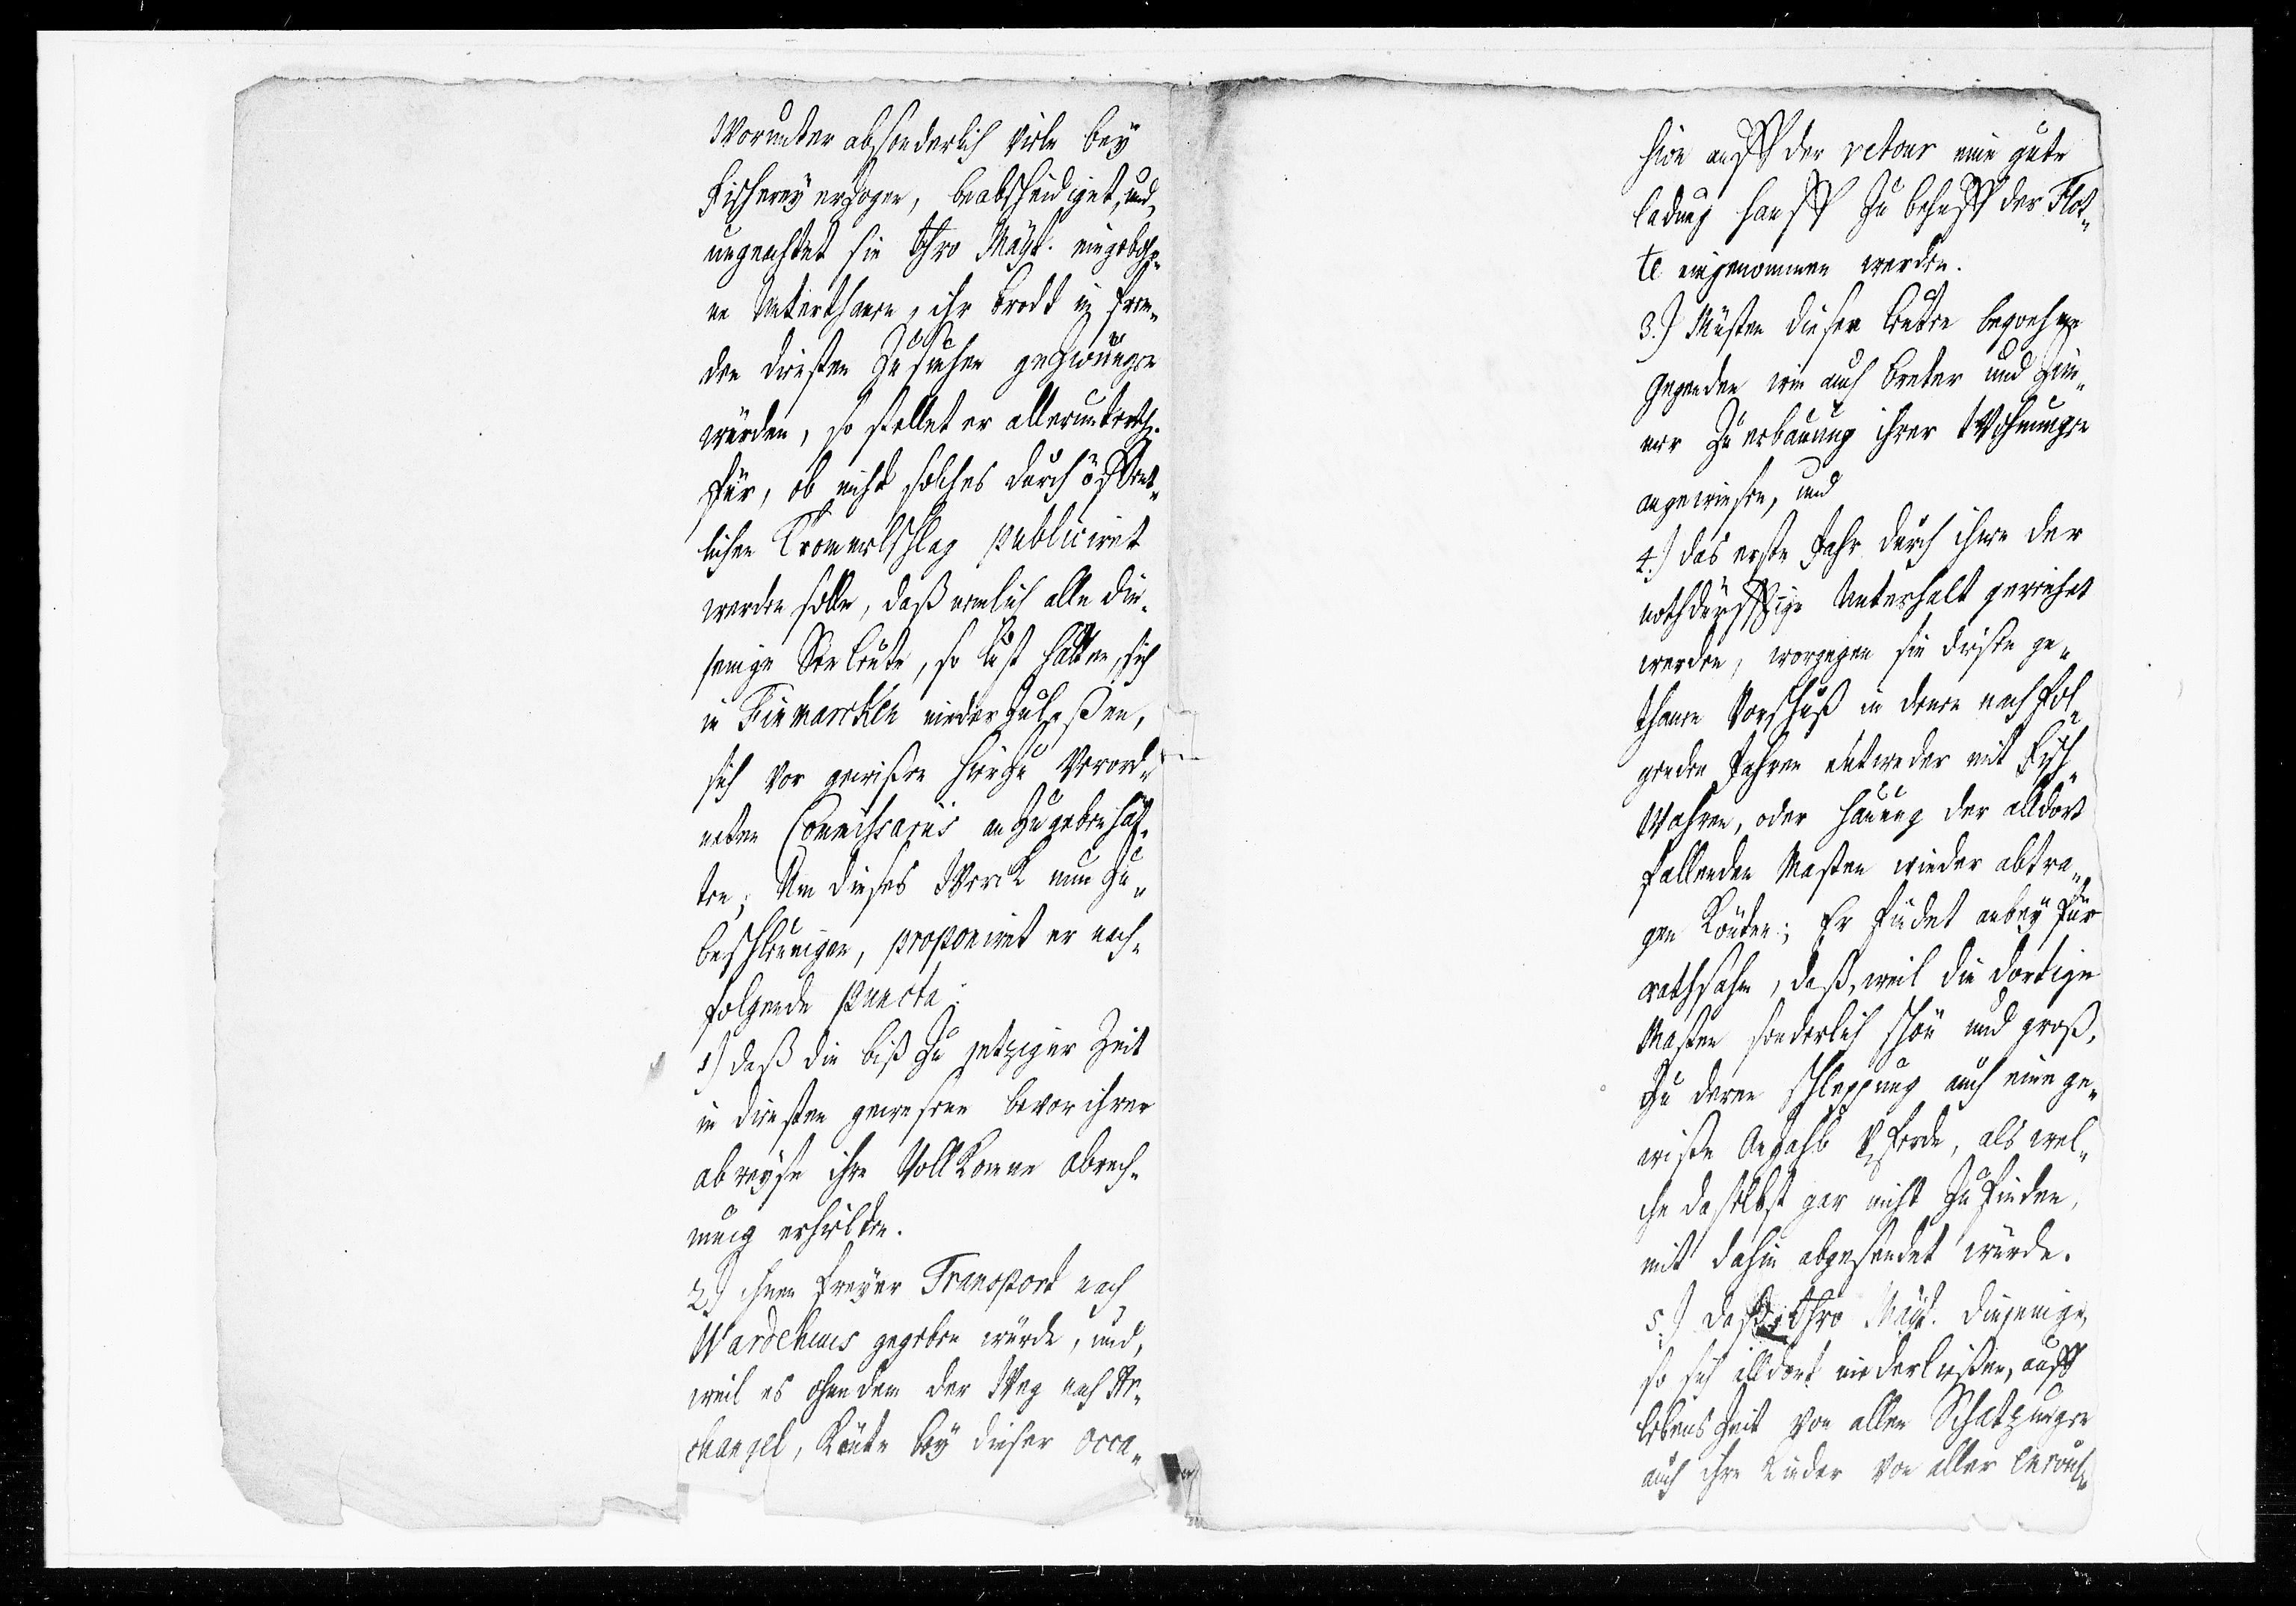 Worunter absonderlich viele bey
Fischerey erzogen, beabscheidiget, und,
ungeachtet sie Ihro Mayt. eingebohr¬
ne Unterthanen, ihr brodt in frem¬
den diensten zu suchen gezwungen
würden, so stellet er allerunterth.
für, ob nicht solches durch öffent¬
lichen Trommelschlag publiciret
werden solle, daß nemlich alle die¬
jenige See leute, so lust hätten, sich
in Finmarcken niederzulaßen,
sich vor gewißen hierzu Verord¬
neten Commissariis anzugeben hät¬
ten; Um dieses Werck nun zu¬
beschleunigen, proponiret er nach¬
folgende puncta:
1) daß die biß zu jetziger Zeit
in diensten gewesene bevor ihrer
abreyse ihre Vollkomne abrech¬
nung erhielten.
2) ihnen freyer Transport nach
Wardehuus gegeben würde, und,
weil es ohne dem der Weg nach Ar¬
changel, könte bey dieser occa¬
hin auff der retour eine gute
ladung hanff zu behuff der Flot¬
te eingenommen werden.
3.) Müsten diesen leuten beqvehme
Gegenden wie auch breter und Zim¬
mer zu erbauung ihrer Wohnungen
angewiesen, und
4.) das erste Jahr durch ihnen der
nothdürfftige Unterhalt gereichet
werden, worgegen sie diesen ge¬
thanen Vorschuß in denen nachfol¬
genden Jahren entweder mit Fisch¬
Wahren, oder hauung der alldort
fallenden Masten wieder abtra¬
gen könten; Er findet anbey für
rathsahm, daß, weil die dortige
Masten sonderlich schön und groß,
zu deren schleppung auch eine ge¬
wiße Anzahl Pferde, als wel¬
che daselbst gar nicht zu finden,
mit dahin abgesandt würde.
5.) daß Ihro Mayt. diejenige,
so sich alldort niederließen, auff
lebens Zeit von allen Schatzungen
auch ihre Kinder von aller enroul¬